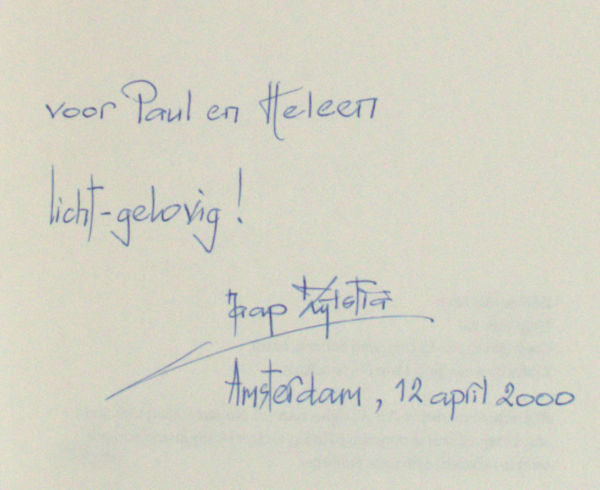 voor Paul en Heleen
licht-gelovig!
Jaap Zijlstra
Amsterdam, 12 april 2000